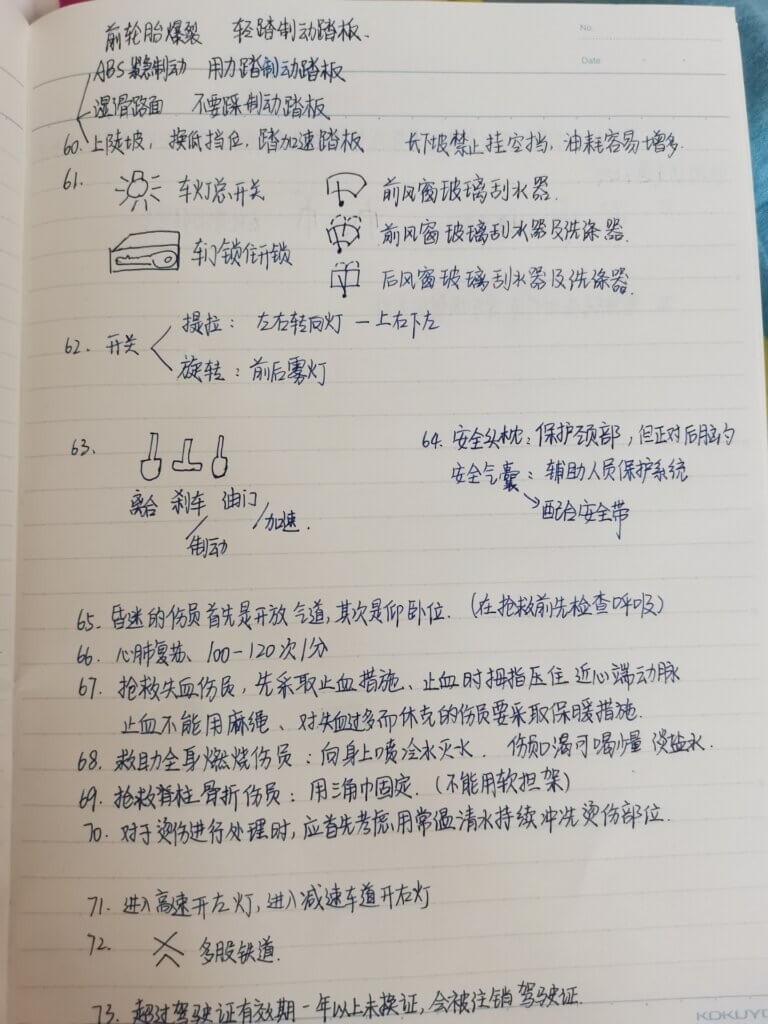 No.
Date
前轮胎爆裂 轻踏制动踏板.
ABS紧急制动 用力踏制动踏板
湿滑路面 不要踩制动踏板
60. 上陡坡, 换低挡位, 踏加速踏板 长下坡禁止挂空挡, 油耗容易增多.
61. 车灯总开关 前风窗玻璃刮水器.
前风窗玻璃刮水器及洗涤器.
车门锁住开锁
后风窗玻璃刮水器及洗涤器.
62. 开关 提拉: 左右转向灯 — 上右下左
旋转: 前后雾灯
63.
离合 刹车 油门
制动 加速.
64. 安全头枕: 保护颈部, 但正对后脑勺
安全气囊: 辅助人员保护系统
配合安全带
65. 昏迷的伤员首先是开放气道, 其次是仰卧位. (在抢救前先检查呼吸)
66. 心肺复苏、100-120次/分
67. 抢救失血伤员, 先采取止血措施、止血时拇指压住近心端动脉
止血不能用麻绳、对失血过多而休克的伤员要采取保暖措施.
68. 救助全身燃烧伤员: 向身上喷冷水灭火. 伤员口渴可喝少量淡盐水.
69. 抢救脊柱骨折伤员: 用三角巾固定. (不能用软担架)
70. 对于烫伤进行处理时, 应首先考虑用常温清水持续冲洗烫伤部位.
71. 进入高速开左灯, 进入减速车道开右灯
72. 多股铁道.
73. 超过驾驶证有效期一年以上未换证, 会被注销驾驶证.
KOKUYO